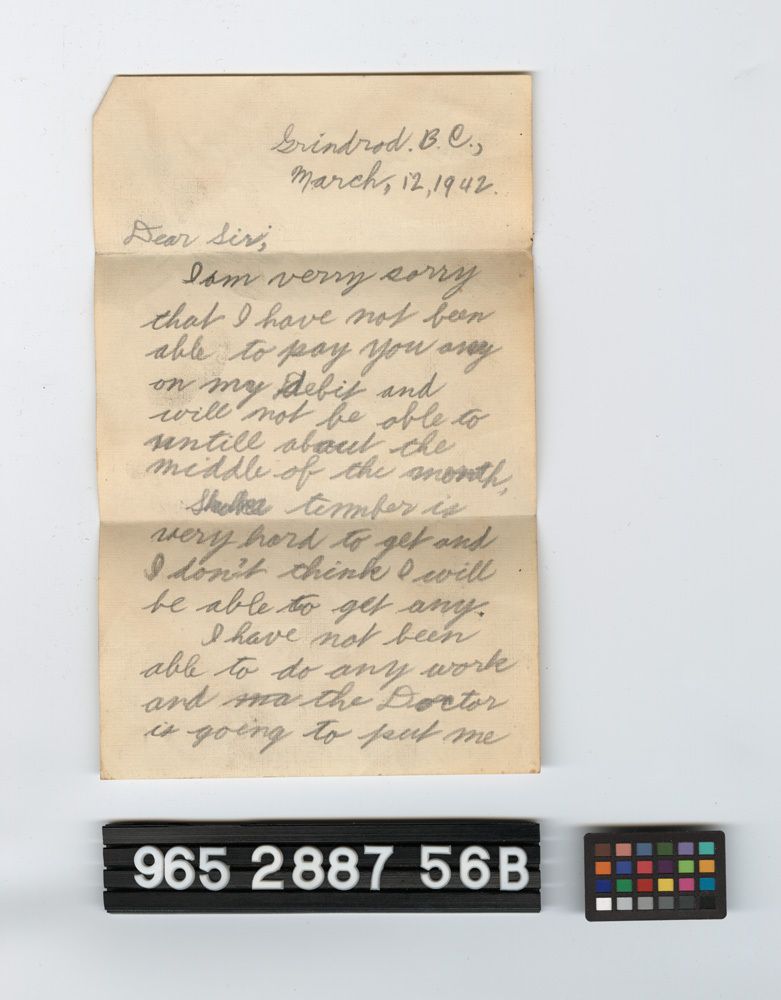 Grindrod. B. C.,
March, 12, 1942.
Dear Sir;
I am verry sorry
that I have not been
able to pay you any
on my Debit and
will not be able to
untill about the
middle of the month,
timber is
very hard to get and
I don't think I will
be able to get any.
I have not been
able to do any work
and the Doctor
is going to put me
965 2887 56B